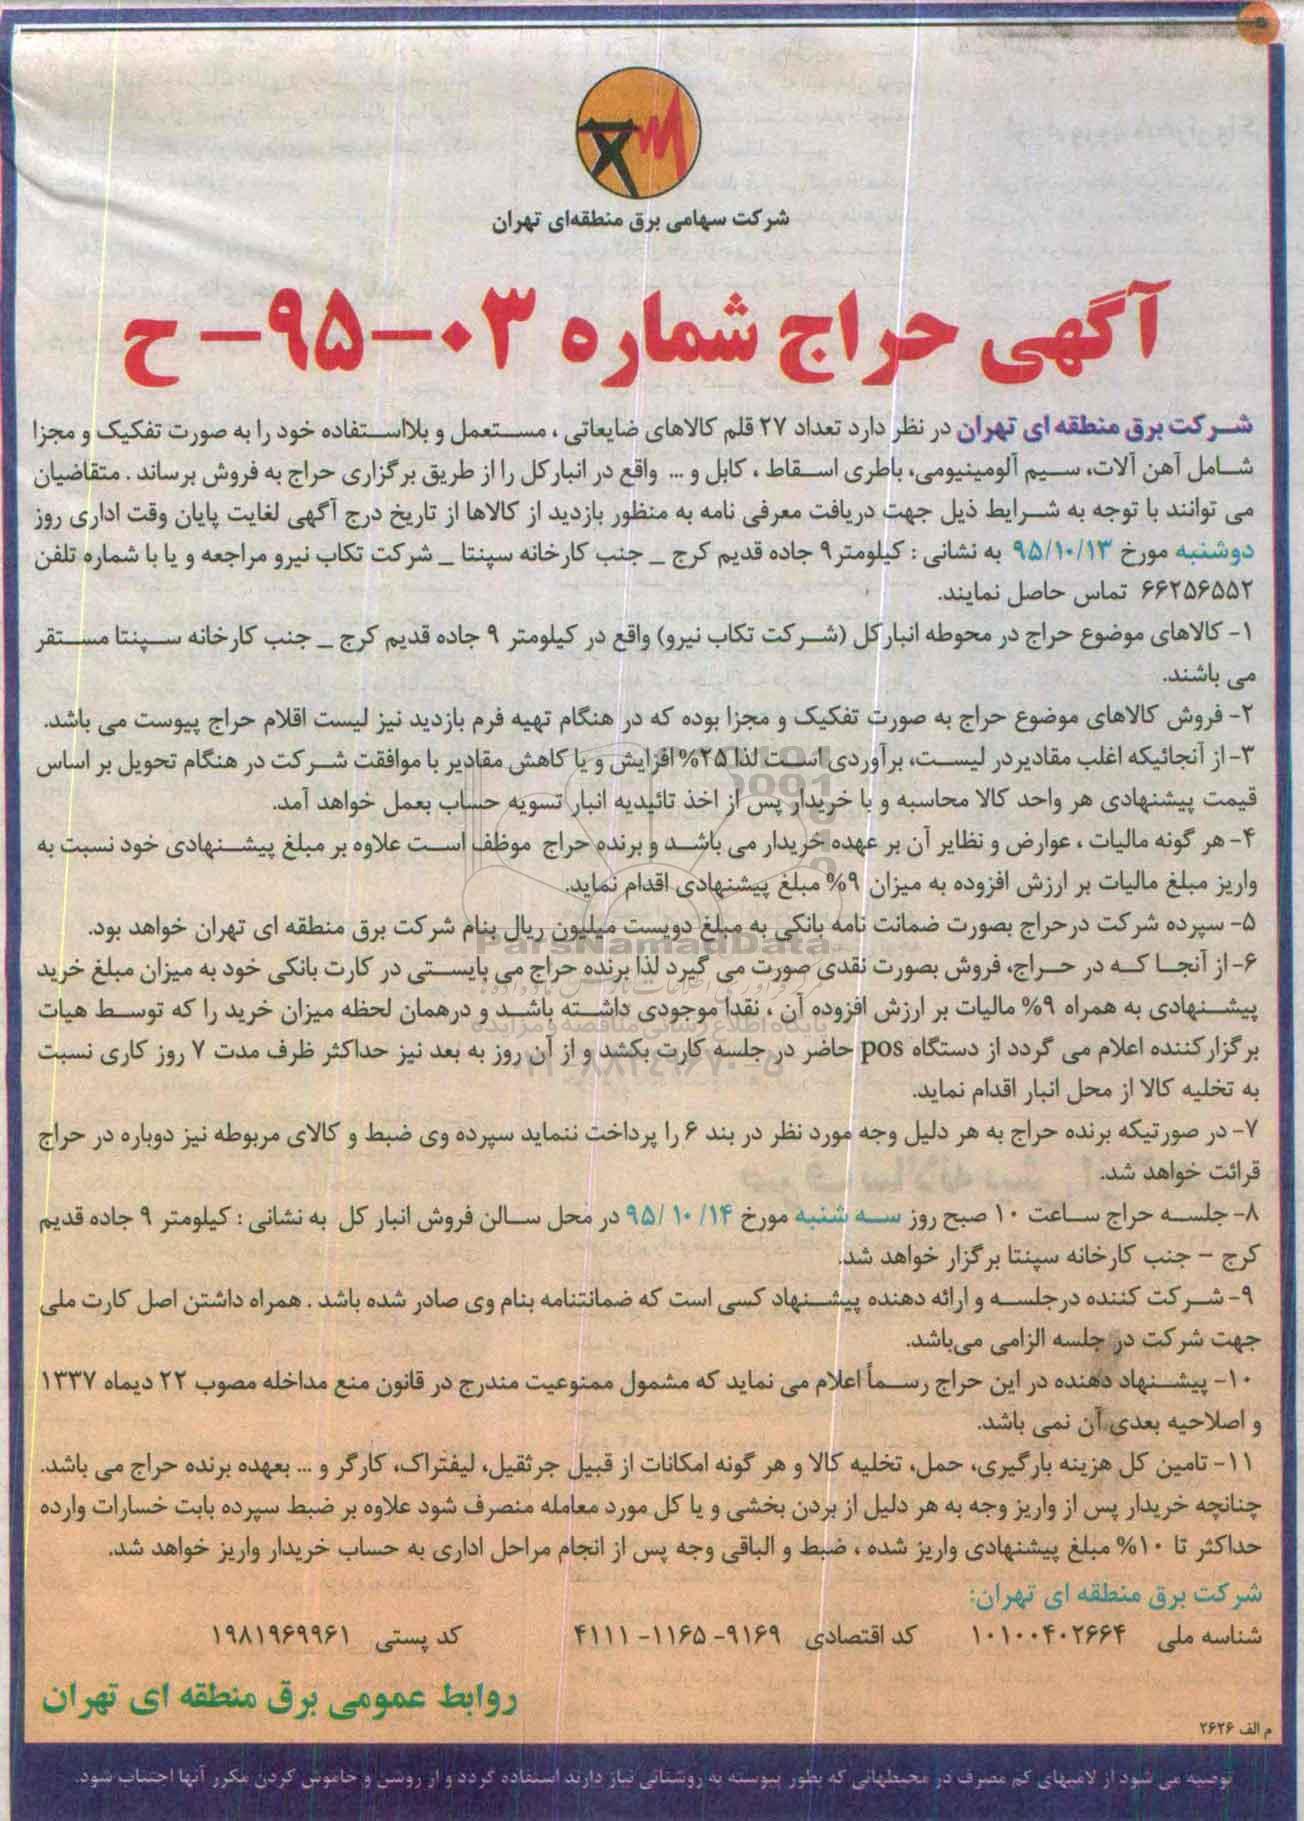 شرکت سهامی برق منطقه‌ای تهران
آگهی حراج شماره ۰۳-۹۵- ح
شرکت برق منطقه ای تهران در نظر دارد تعداد ۲۷ قلم کالاهای ضایعاتی ، مستعمل و بلااستفاده خود را به صورت تفکیک و مجزا
شامل آهن آلات، سیم آلومینیومی، باطری اسقاط ، کابل و ... واقع در انبارکل را از طریق برگزاری حراج به فروش برساند . متقاضیان
می توانند با توجه به شرایط ذیل جهت دریافت معرفی نامه به منظور بازدید از کالاها از تاریخ درج آگهی لغایت پایان وقت اداری روز
دوشنبه مورخ ۹۵/۱۰/۱۳ به نشانی : کیلومتر۹ جاده قدیم کرج _ جنب کارخانه سپنتا _ شرکت تکاب نیرو مراجعه و یا با شماره تلفن
۶۶۲۵۶۵۵۲ تماس حاصل نمایند.
۱- کالاهای موضوع حراج در محوطه انبارکل (شرکت تکاب نیرو) واقع در کیلومتر ۹ جاده قدیم کرج _ جنب کارخانه سپنتا مستقر
می باشند.
۲- فروش کالاهای موضوع حراج به صورت تفکیک و مجزا بوده که در هنگام تهیه فرم بازدید نیز لیست اقلام حراج پیوست می باشد.
۳- از آنجائیکه اغلب مقادیردر لیست، برآوردی است لذا ۲۵% افزایش و یا کاهش مقادیر با موافقت شرکت در هنگام تحویل بر اساس
قیمت پیشنهادی هر واحد کالا محاسبه و با خریدار پس از اخذ تائیدیه انبار تسویه حساب بعمل خواهد آمد.
۴- هر گونه مالیات ، عوارض و نظایر آن بر عهده خریدار می باشد و برنده حراج موظف است علاوه بر مبلغ پیشنهادی خود نسبت به
واریز مبلغ مالیات بر ارزش افزوده به میزان ۹% مبلغ پیشنهادی اقدام نماید.
۵- سپرده شرکت درحراج بصورت ضمانت نامه بانکی به مبلغ دویست میلیون ریال بنام شرکت برق منطقه ای تهران خواهد بود.
ParsNamadData
۶- از آنجا که در حراج، فروش بصورت نقدی صورت می گیرد لذا برنده حراج می بایستی در کارت بانکی خود به میزان مبلغ خرید
پیشنهادی به همراه ۹% مالیات بر ارزش افزوده آن ، نقدا موجودی داشته باشد و درهمان لحظه میزان خرید را که توسط هیات
پایگاه اطلاع رسانی مناقصه و مزایده
برگزارکننده اعلام می گردد از دستگاه pos حاضر در جلسه کارت بکشد و از آن روز به بعد نیز حداکثر ظرف مدت ۷ روز کاری نسبت
به تخلیه کالا از محل انبار اقدام نماید.
۷- در صورتیکه برنده حراج به هر دلیل وجه مورد نظر در بند ۶ را پرداخت ننماید سپرده وی ضبط و کالای مربوطه نیز دوباره در حراج
قرائت خواهد شد.
۸- جلسه حراج ساعت ۱۰ صبح روز سه شنبه مورخ ۹۵/۱۰/۱۴ در محل سالن فروش انبار کل به نشانی : کیلومتر ۹ جاده قدیم
کرج – جنب کارخانه سپنتا برگزار خواهد شد.
۹- شرکت کننده درجلسه و ارائه دهنده پیشنهاد کسی است که ضمانتنامه بنام وی صادر شده باشد . همراه داشتن اصل کارت ملی
جهت شرکت در جلسه الزامی می‌باشد.
۱۰- پیشنهاد دهنده در این حراج رسماً اعلام می نماید که مشمول ممنوعیت مندرج در قانون منع مداخله مصوب ۲۲ دیماه ۱۳۳۷
و اصلاحیه بعدی آن نمی باشد.
۱۱- تامین کل هزینه بارگیری، حمل، تخلیه کالا و هر گونه امکانات از قبیل جرثقیل، لیفتراک، کارگر و ... بعهده برنده حراج می باشد.
چنانچه خریدار پس از واریز وجه به هر دلیل از بردن بخشی و یا کل مورد معامله منصرف شود علاوه بر ضبط سپرده بابت خسارات وارده
حداکثر تا ۱۰% مبلغ پیشنهادی واریز شده ، ضبط و الباقی وجه پس از انجام مراحل اداری به حساب خریدار واریز خواهد شد.
شرکت برق منطقه ای تهران:
شناسه ملی ۱۰۱۰۰۴۰۲۶۶۴ کد اقتصادی ۹۱۶۹-۱۱۶۵-۴۱۱۱ کد پستی ۱۹۸۱۹۶۹۹۶۱
روابط عمومی برق منطقه ای تهران
م الف ۲۶۲۶
توصیه می شود از لامپهای کم مصرف در محیطهائی که بطور پیوسته به روشنائی نیاز دارند استفاده گردد و از روشن و خاموش کردن مکرر آنها اجتناب شود.